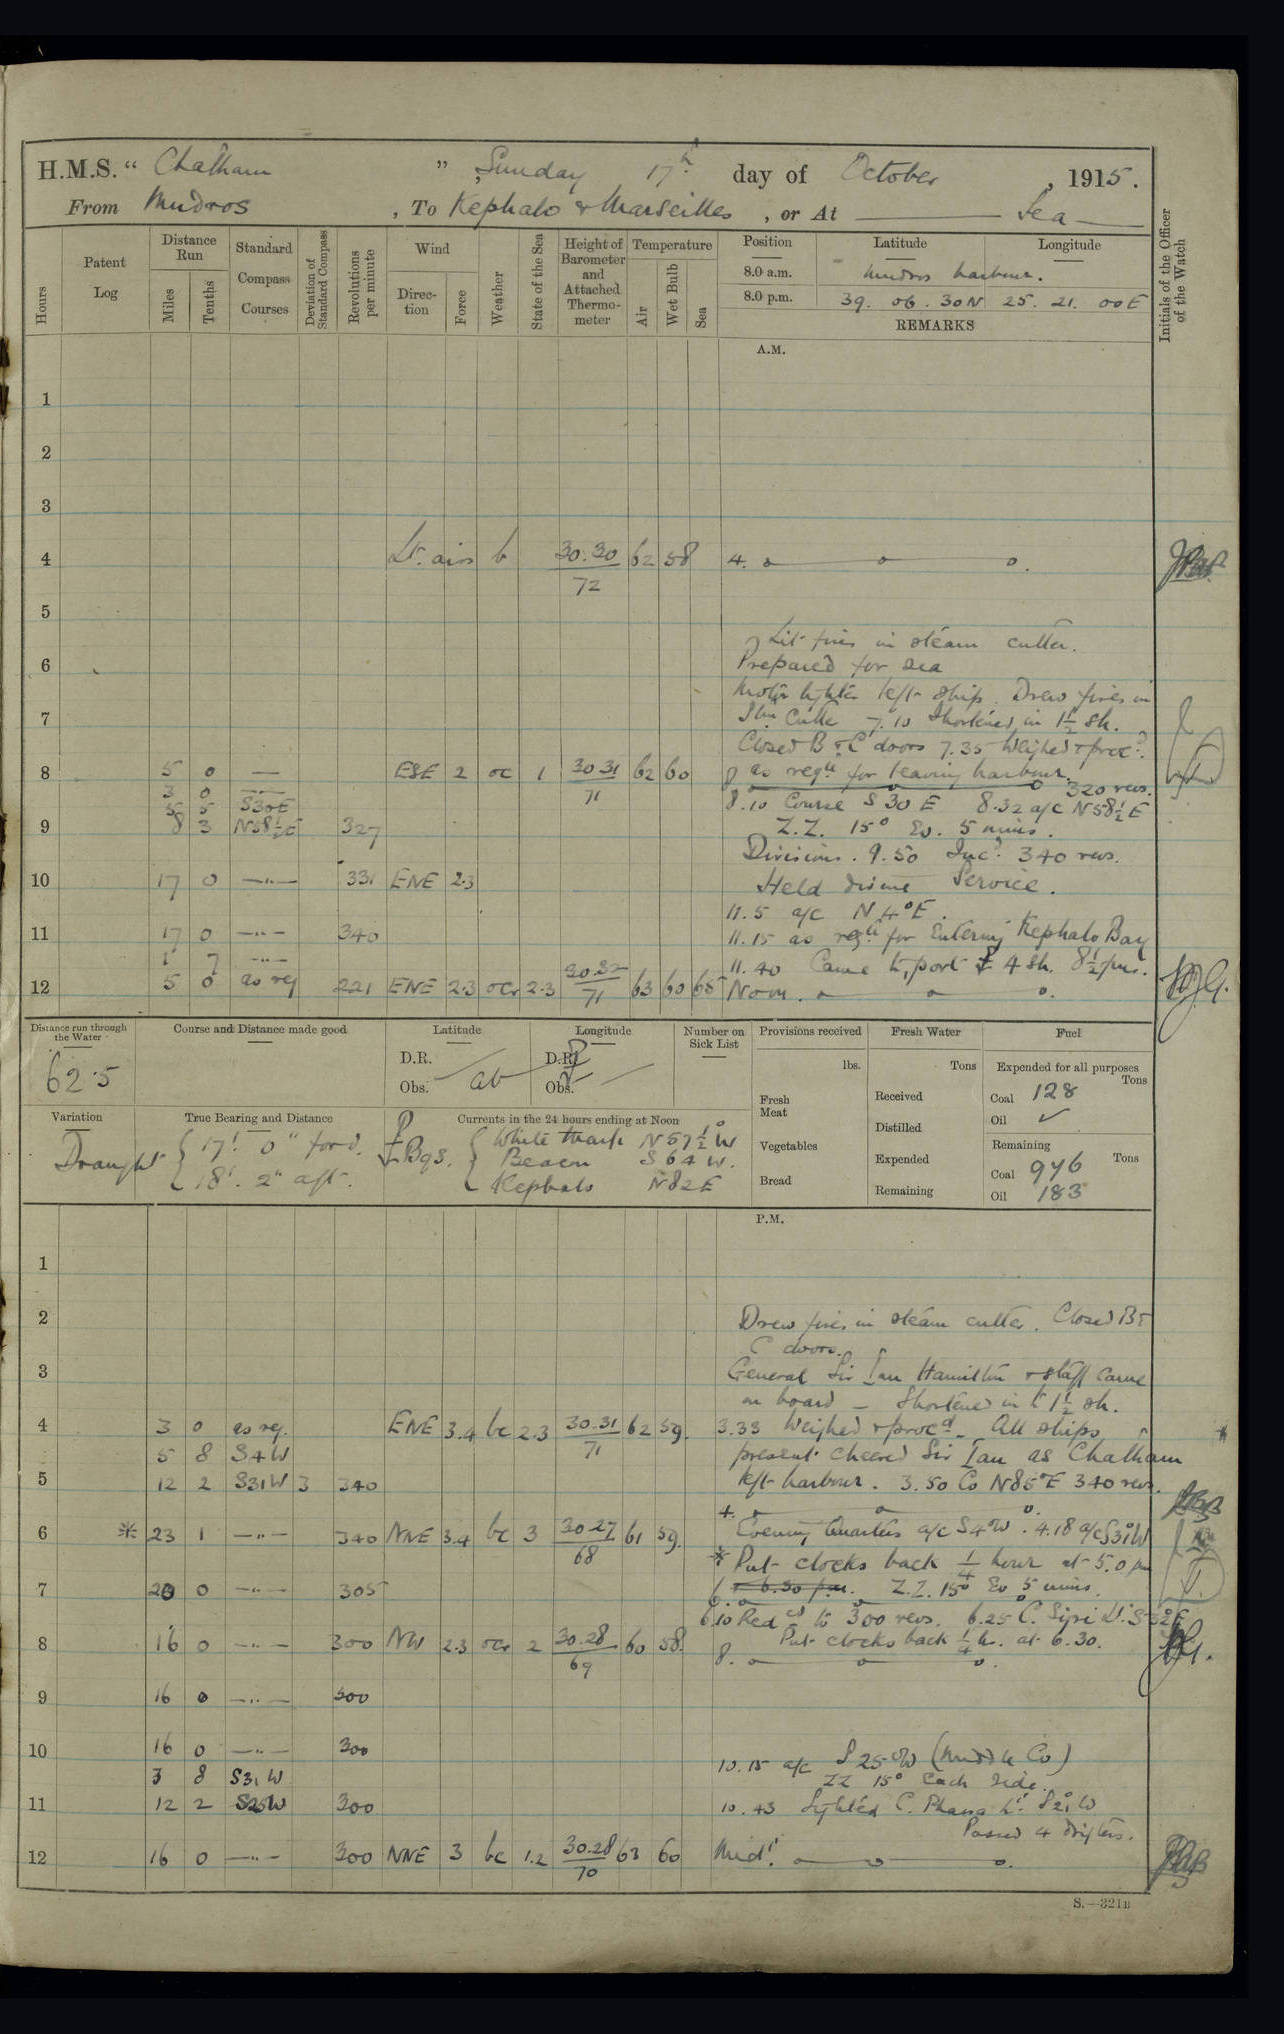 H.M.S. “ Chatham ”, Sunday 17th day of October, 1915.
From Mudros, To Kephalo & Marseilles, or At Sea
Hours
Patent Log
Distance Run
Miles
Tenths
Standard Compass Courses
Deviation of Standard Compass
Revolutions per minute
Wind
Direction
Force
Weather
State of the Sea
Height of Barometer and Attached Thermometer
Temperature
Air
Wet Bulb
Sea
Position Latitude Longitude
8.0 a.m. Mudros harbour.
8.0 p.m. 39. 06. 30N 25. 21. 00E
REMARKS
Initials of the Officer of the Watch
A.M.
1
2
3
4 Lt. airs b 30.30 62 58 4.
72
5
Lit fires in steam cutter.
6 Prepared for sea
Motor lighter left ship. Drew fires in
7 Stm Cutter 7.10 Shortened in 1½ sh.
Closed B & C doors 7.35 Weighed & procd.
8 5 0 — ESE 2 oc 1 30.31 62 60 8 as reqte for leaving harbour.
71
3 0 — 320 revs.
5 5 S30E 8.10 Course S 30 E 8.32 a/c N58½E
9 8 3 N58½E 327 Z.Z. 15° Ev. 5 mins.
Divisions. 9.50 Incd. 340 revs.
10 17 0 —"— 331 ENE 2.3 Held divine Service.
11.5 a/c N 4° E.
11 17 0 —"— 340 11.15 as reqte for Entering Kephalo Bay
1 7 —"— 11.40 Came to, port 4 sh. 8½ fms.
12 5 0 as req 221 ENE 2.3 ocr 2.3 30.32 63 60 65 Noon.
71
Distance run through the Water
62.5
Course and Distance made good
Latitude
D.R.
Obs.
Longitude
D.R.
Obs.
at
Number on Sick List
Provisions received
lbs.
Fresh Meat
Vegetables
Bread
Fresh Water
Tons
Received
Distilled
Expended
Remaining
Fuel
Expended for all purposes
Tons
Coal 128
Oil ✓
Remaining
Tons
Coal 946
Oil 183
Variation
True Bearing and Distance
Draught 17'. 0" ford.
18'. 2" aft.
Currents in the 24 hours ending at Noon
Bgs. White mark N57½°W
Beacon S 64 W.
Kephalo N82E
P.M.
1
2 Drew fires in steam cutter. Closed B &
C doors.
3 General Sir Ian Hamilton & staff came
on board — Shortened in to 1½ sh.
4 3 0 as req. ENE 3.4 bc 2.3 30.31 62 59. 3.33 Weighed & procd. All ships
71
5 8 S4W present cheered Sir Ian as Chatham
5 12 2 S31W 3 340 left harbour. 3.50 Co N85°E 340 revs.
4.
Evening Quarters a/c S4°W. 4.18 a/c S31°W
6 * 23 1 —"— 340 NNE 3.4 bc 3 30.27 61 59.
68
* Put clocks back ¼ hour at 5.0 pm
7 20 0 —"— 305 6.30 pm. Z.Z. 15° Ev 5 mins.
6.
6.10 Redcd to 300 revs. 6.25 C. Sigri Lt. S52°E
Put clocks back ¼ hr. at 6.30.
8 16 0 —"— 300 NW 2.3 ocr 2 30.28 60 58. 8.
69
9 16 0 —"— 300
10 16 0 —"— 300
3 8 S31W 10.15 a/c S 25°W (Middle Co)
ZZ 15° Each side.
11 12 2 S25W 300 10.43 Sighted C. Phassa Lt. S21°W
Passed 4 drifters.
12 16 0 —"— 300 NNE 3 bc 1.2 30.28 63 60 Midt.
70
S.—321B